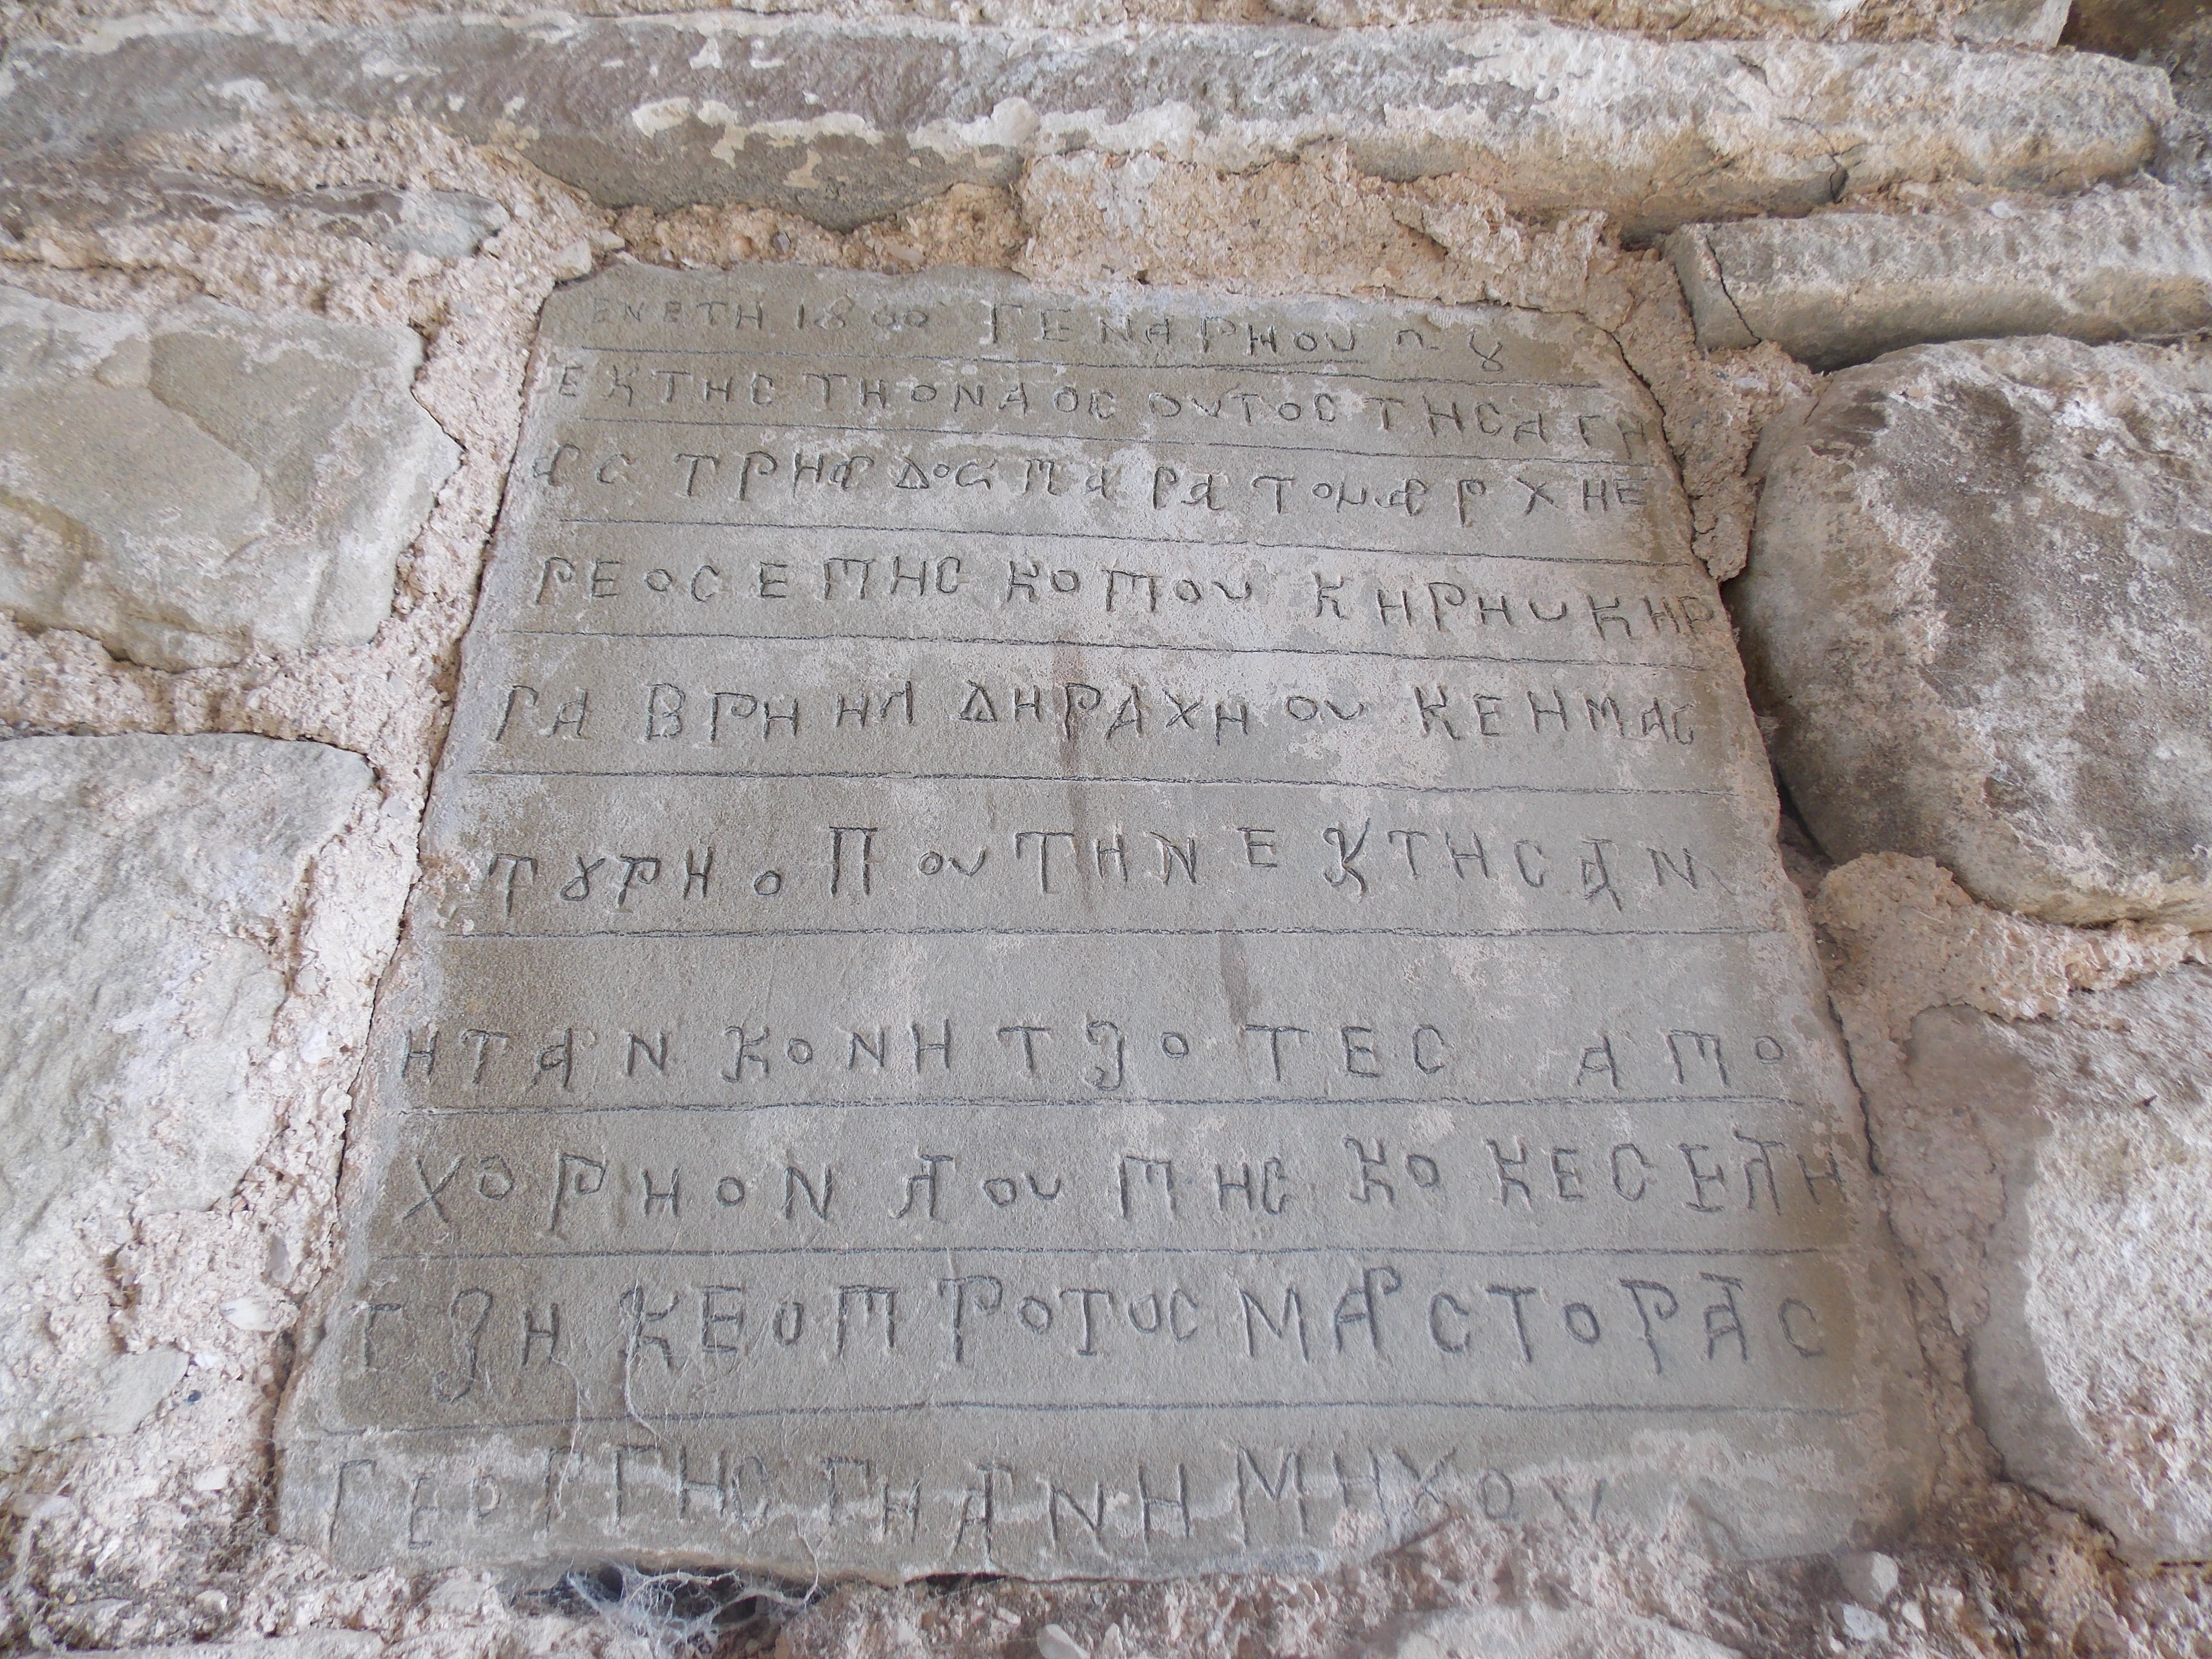 ΕΝ ΕΤΗ 1800 ΓΕΝΑΡΗΟΥ
ΕΚΤΗС ΤΗ Ο ΝΑΟС ΟΥΤΟС ΤΗС ΑΓΗ
ΑС ΤΡΗΑΔΟС ΠΑΡΑ ΤΟΥ ΑΡΧΗΕ
ΡΕΟС ΕΠΗСΚΟΠΟΥ ΚΗΡΗΥ ΚΗΡ
ΓΑΒΡΗΗΛ ΔΗΡΑΧΗΟΥ ΚΕ Η ΜΑС
ΤΟΥΡΗ ΟΠΟΥ ΤΗΝ ΕΚΤΗСΑΝ
ΗΤΑΝ ΚΟΝΗΤЗΟΤΕС ΑΠΟ
ΧΟΡΗΟΝ ΑΟΥ ΠΗСΚΟ ΚΕ СΕΛΤΗ
ΤЗΗ ΚΕ Ο ΠΡΟΤΟС ΜΑСΤΟΡΑС
ΓΕΟΡΓΗС ΓΗΑΝΗ ΜΗΧΟΥ